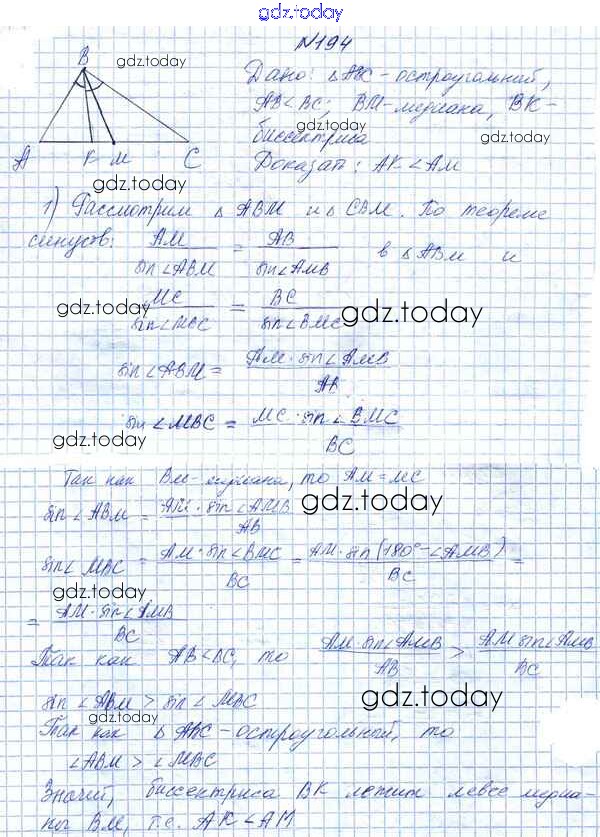 gdz.today
№194
B
gdz.today
Дано: △ABC - остроугольный,
AB<BC; BM-медиана, BK-
gdz.today
биссектриса
A K M C
Доказат: AK<AM
gdz.today
1) Рассмотрим △ABM и △CBM. По теореме
синусов: AM / sin∠ABM = AB / sin∠AMB в △ABM и
gdz.today
MC / sin∠MBC = BC / sin∠BMC
gdz.today
sin∠ABM = AM·sin∠AMB / AB
sin∠MBC = MC·sin∠BMC / BC
gdz.today
Так как BM-медиана, то AM=MC
gdz.today
sin∠ABM = AM·sin∠AMB / AB
sin∠MBC = AM·sin∠BMC / BC = AM·sin(180°-∠AMB) / BC =
gdz.today
= AM·sin∠AMB / BC
Так как AB<BC, то AM·sin∠AMB / AB > AM sin∠AMB / BC
sin∠ABM > sin∠MBC
gdz.today
gdz.today
Так как △ABC-остроугольной, то
∠ABM > ∠MBC
gdz.today
Значит, биссектриса BK лежит левее медиа-
ны BM, т.е. AK<AM
gdz.today